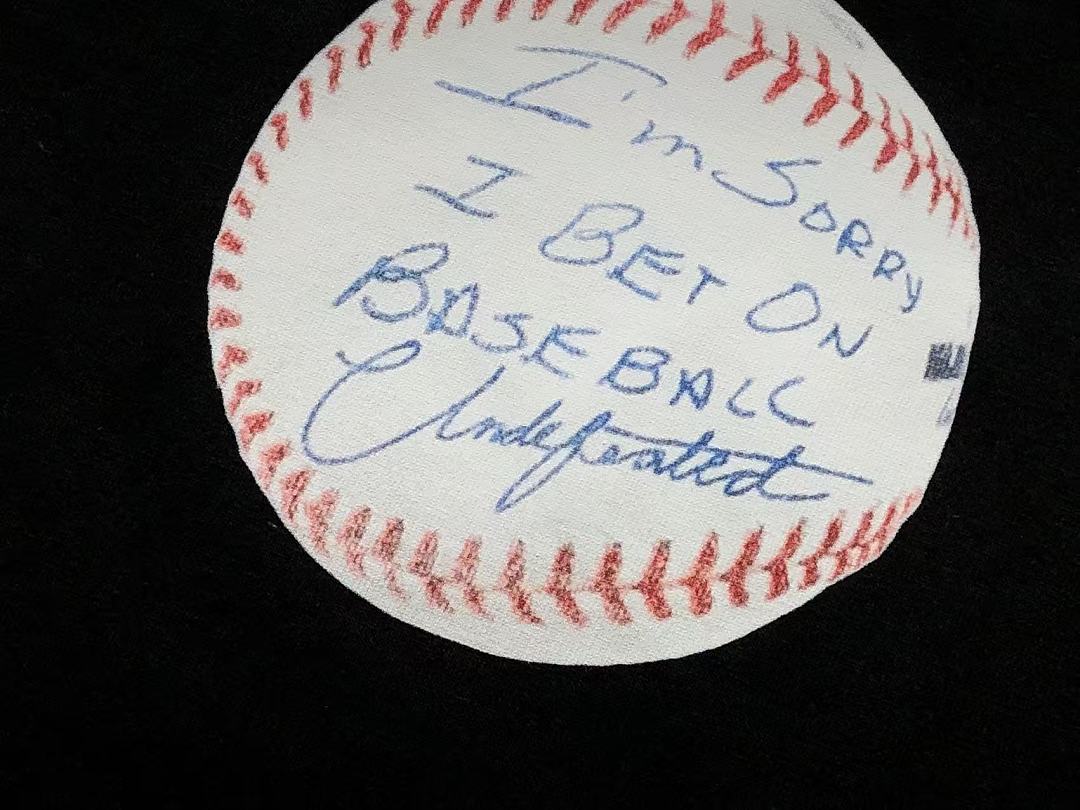 I'm SORRY
I BET ON
BASEBALL
Undefeated